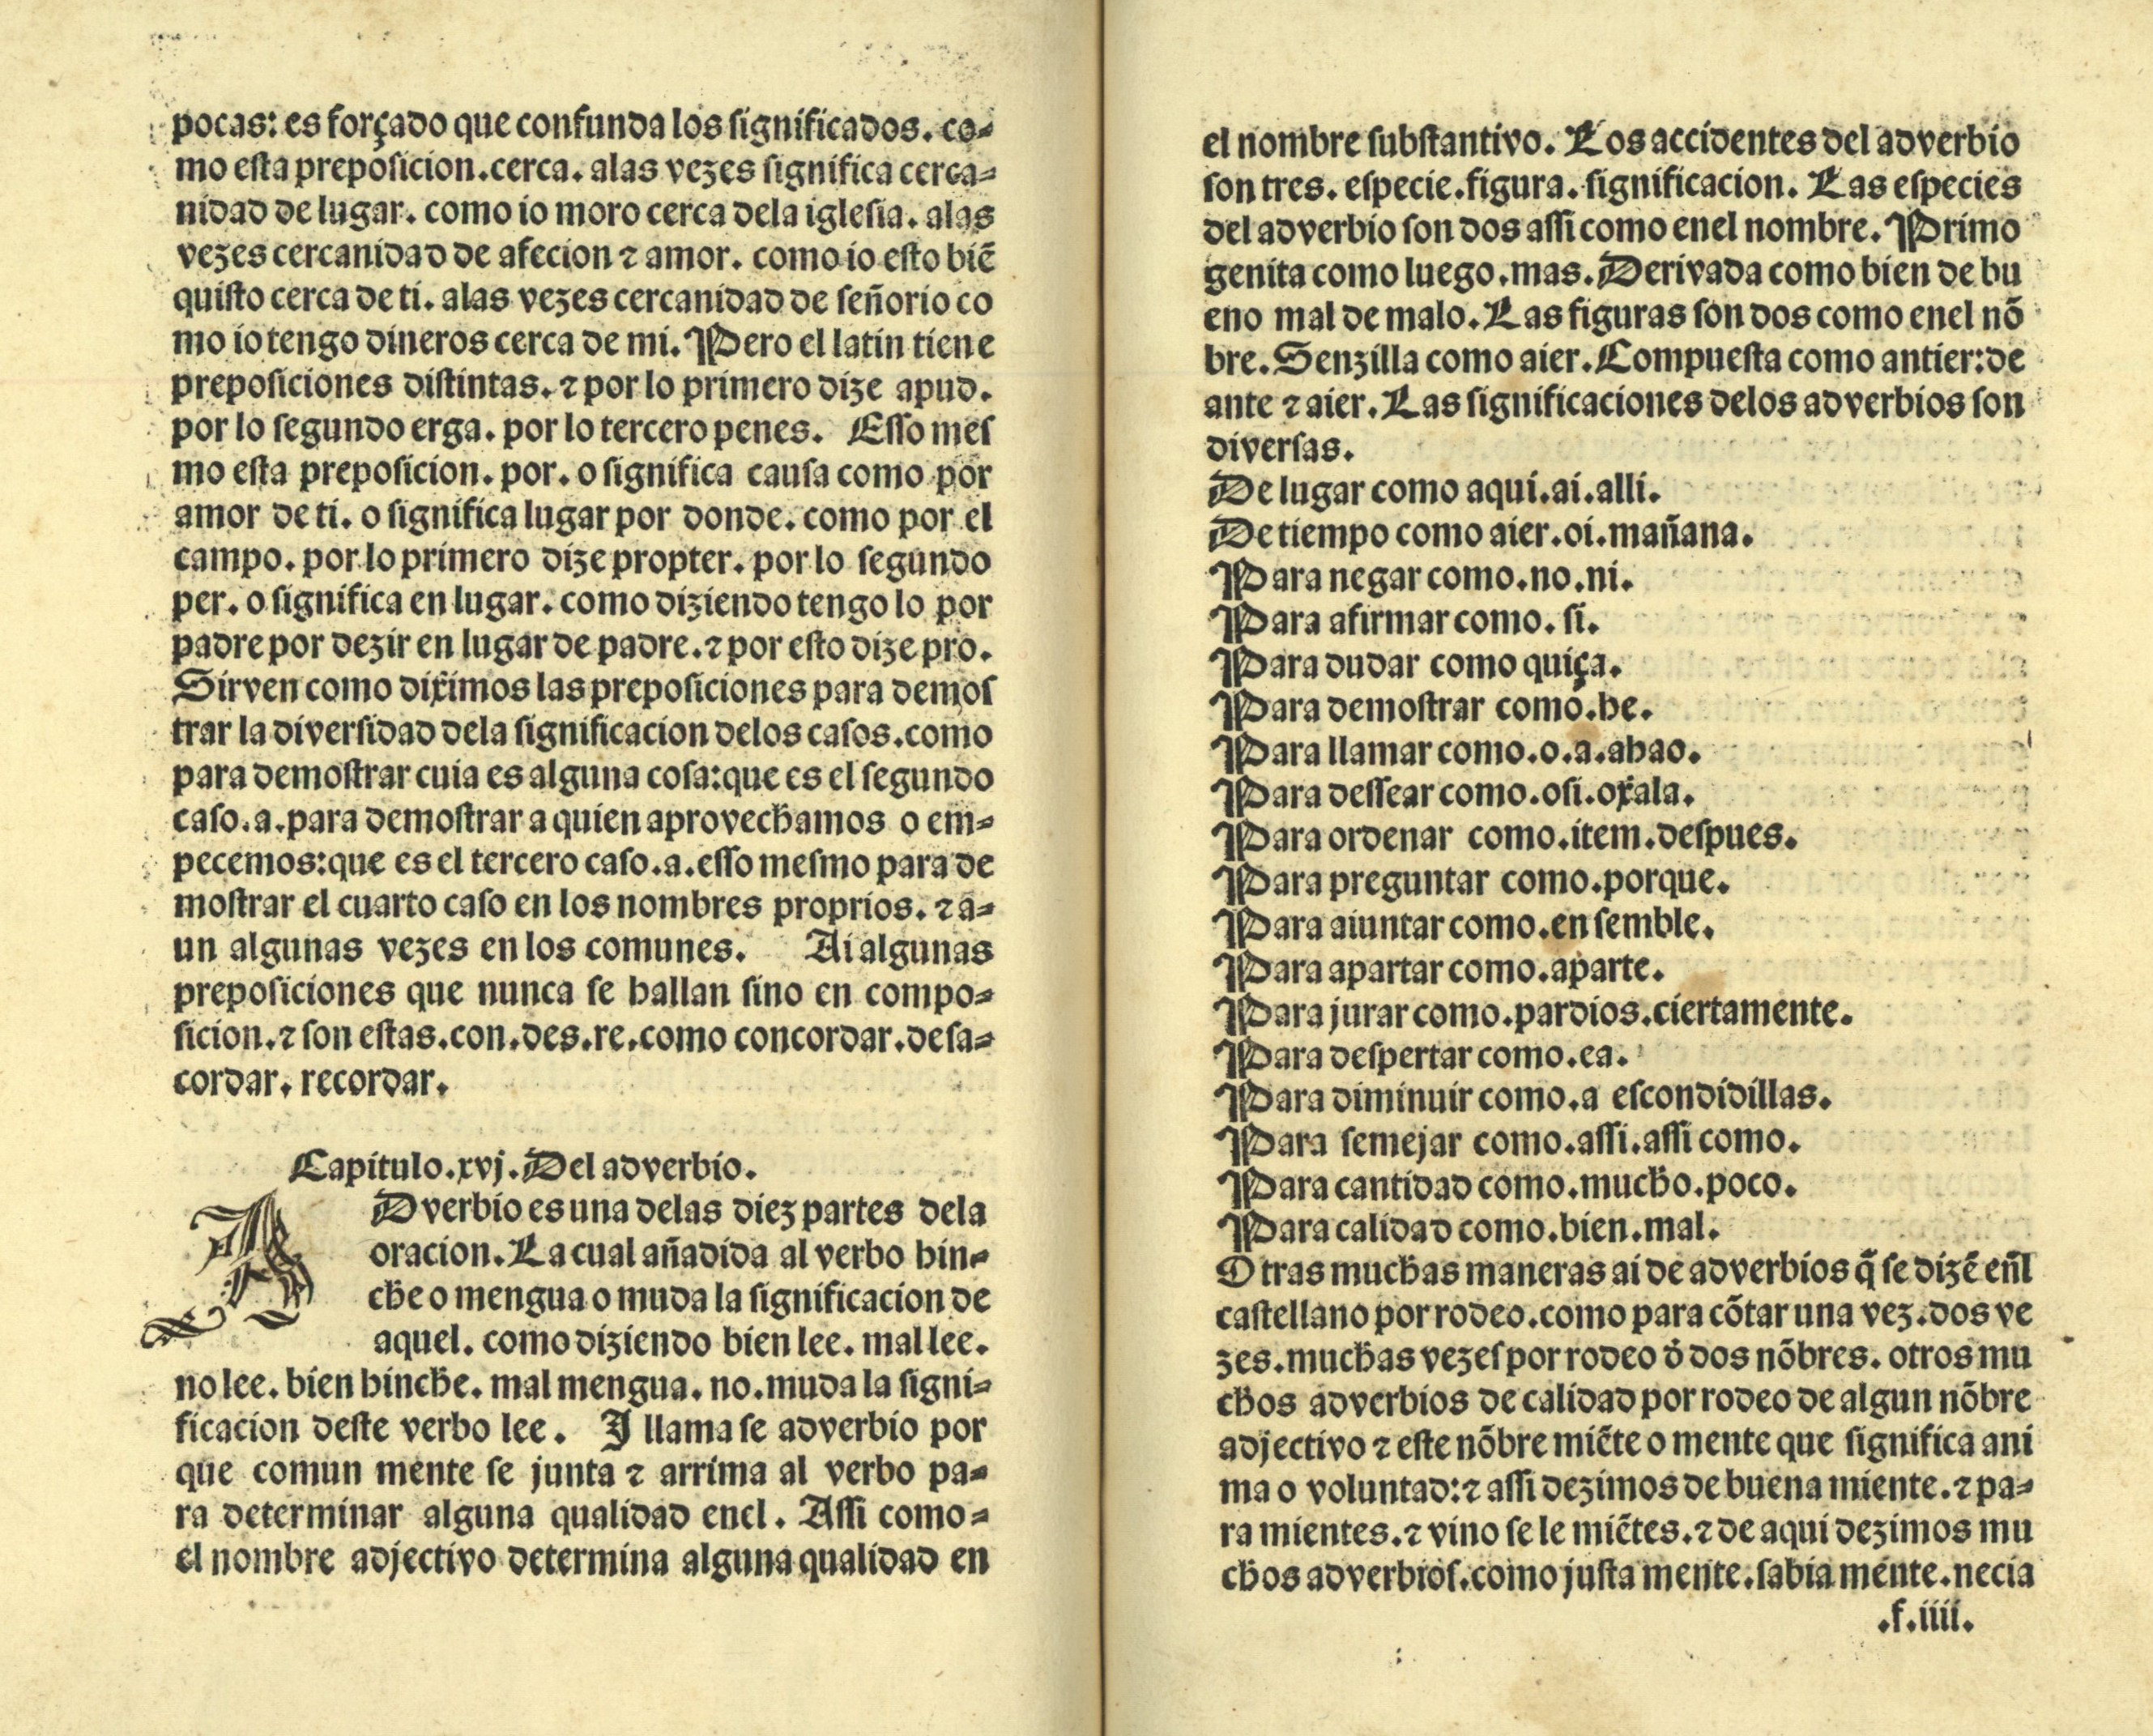 pocas: es forçado que confunda los significados. co-
mo esta preposicion.cerca. alas vezes significa cerca-
nidad de lugar. como io moro cerca dela iglesia. alas
vezes cercanidad de afecion ⁊ amor. como io esto biẽ
quisto cerca de ti. alas vezes cercanidad de señorio co
mo io tengo dineros cerca de mi. Pero el latin tiene
preposiciones distintas. ⁊ por lo primero dize apud.
por lo segundo erga. por lo tercero penes. Esso mes
mo esta preposicion. por. o significa causa como por
amor de ti. o significa lugar por donde. como por el
campo. por lo primero dize propter. por lo segundo
per. o significa en lugar. como diziendo tengo lo por
padre por dezir en lugar de padre. ⁊ por esto dize pro.
Sirven como diximos las preposiciones para demos
trar la diversidad dela significacion delos casos.como
para demostrar cuia es alguna cosa:que es el segundo
caso.a.para demostrar a quien aprovechamos o em-
pecemos:que es el tercero caso.a.esso mesmo para de
mostrar el cuarto caso en los nombres proprios. ⁊ a-
un algunas vezes en los comunes. Ai algunas
preposiciones que nunca se hallan sino en compo-
sicion.⁊ son estas.con.des.re.como concordar.desa-
cordar. recordar.
Capitulo.xvj.Del adverbio.
ADverbio es una delas diez partes dela
oracion. La cual añadida al verbo hin-
che o mengua o muda la significacion de
aquel. como diziendo bien lee. mal lee.
no lee. bien hinche. mal mengua. no.muda la signi-
ficacion deste verbo lee. I llama se adverbio por
que comun mente se junta ⁊ arrima al verbo pa-
ra determinar alguna qualidad enel. Assi como-
el nombre adjectivo determina alguna qualidad en
el nombre substantivo. Los accidentes del adverbio
son tres. especie.figura.significacion. Las especies
del adverbio son dos assi como enel nombre. Primo
genita como luego.mas. Derivada como bien de bu
eno mal de malo. Las figuras son dos como enel nõ
bre. Senzilla como aier. Compuesta como antier:de
ante ⁊ aier. Las significaciones delos adverbios son
diversas.
De lugar como aqui.ai.alli.
De tiempo como aier.oi.mañana.
Para negar como.no.ni.
Para afirmar como.si.
Para dudar como quiça.
Para demostrar como.he.
Para llamar como.o.a.ahao.
Para dessear como.osi.oxala.
Para ordenar como.item.despues.
Para preguntar como.porque.
Para aiuntar como.en semble.
Para apartar como.aparte.
Para jurar como.pardios.ciertamente.
Para despertar como.ea.
Para diminuir como.a escondidillas.
Para semejar como.assi.assi como.
Para cantidad como.mucho.poco.
Para calidad como.bien.mal.
Otras muchas maneras ai de adverbios q̃ se dizẽ eñl
castellano por rodeo.como para cõtar una vez.dos ve
zes.muchas vezes por rodeo ð dos nõbres. otros mu
chos adverbios de calidad por rodeo de algun nõbre
adjectivo ⁊ este nõbre miẽte o mente que significa ani
ma o voluntad:⁊ assi dezimos de buena miente.⁊ pa-
ra mientes.⁊ vino se le miẽtes.⁊ de aqui dezimos mu
chos adverbios.como justa mente.sabia mente.necia
.f.iiii.